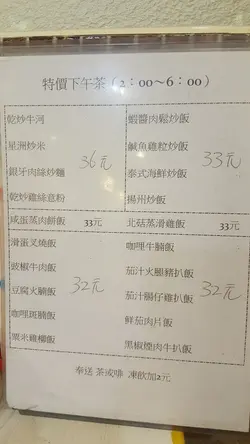 特價下午茶（2：00～6：00）
乾炒牛河
星洲炒米
銀牙肉絲炒麵
乾炒雞絲意粉
36元
蝦醬肉鬆炒飯
鹹魚雞粒炒飯
泰式海鮮炒飯
揚州炒飯
33元
咸蛋蒸肉餅飯 33元
北菇蒸滑雞飯 33元
滑蛋叉燒飯
豉椒牛肉飯
豆腐火腩飯
咖哩斑腩飯
粟米雞柳飯
32元
咖哩牛腩飯
茄汁火腿豬扒飯
茄汁腸仔雞扒飯
鮮茄肉片飯
黑椒煙肉牛扒飯
32元
奉送 茶或啡 凍飲加2元